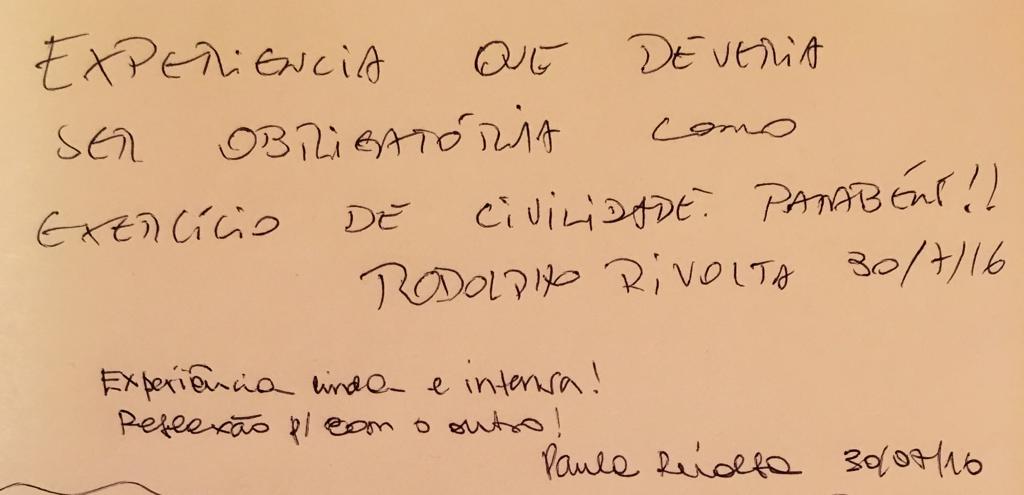 EXPERIENCIA QUE DEVERIA
SER OBRIGATÓRIA COMO
EXERCÍCIO DE CIVILIDADE. PARABÉNS!!
RODOLPHO RIVOLTA 30/7/16
Experiência linda e intensa!
Reflexão p/ com o outro!
Paula Rivolta 30/07/16